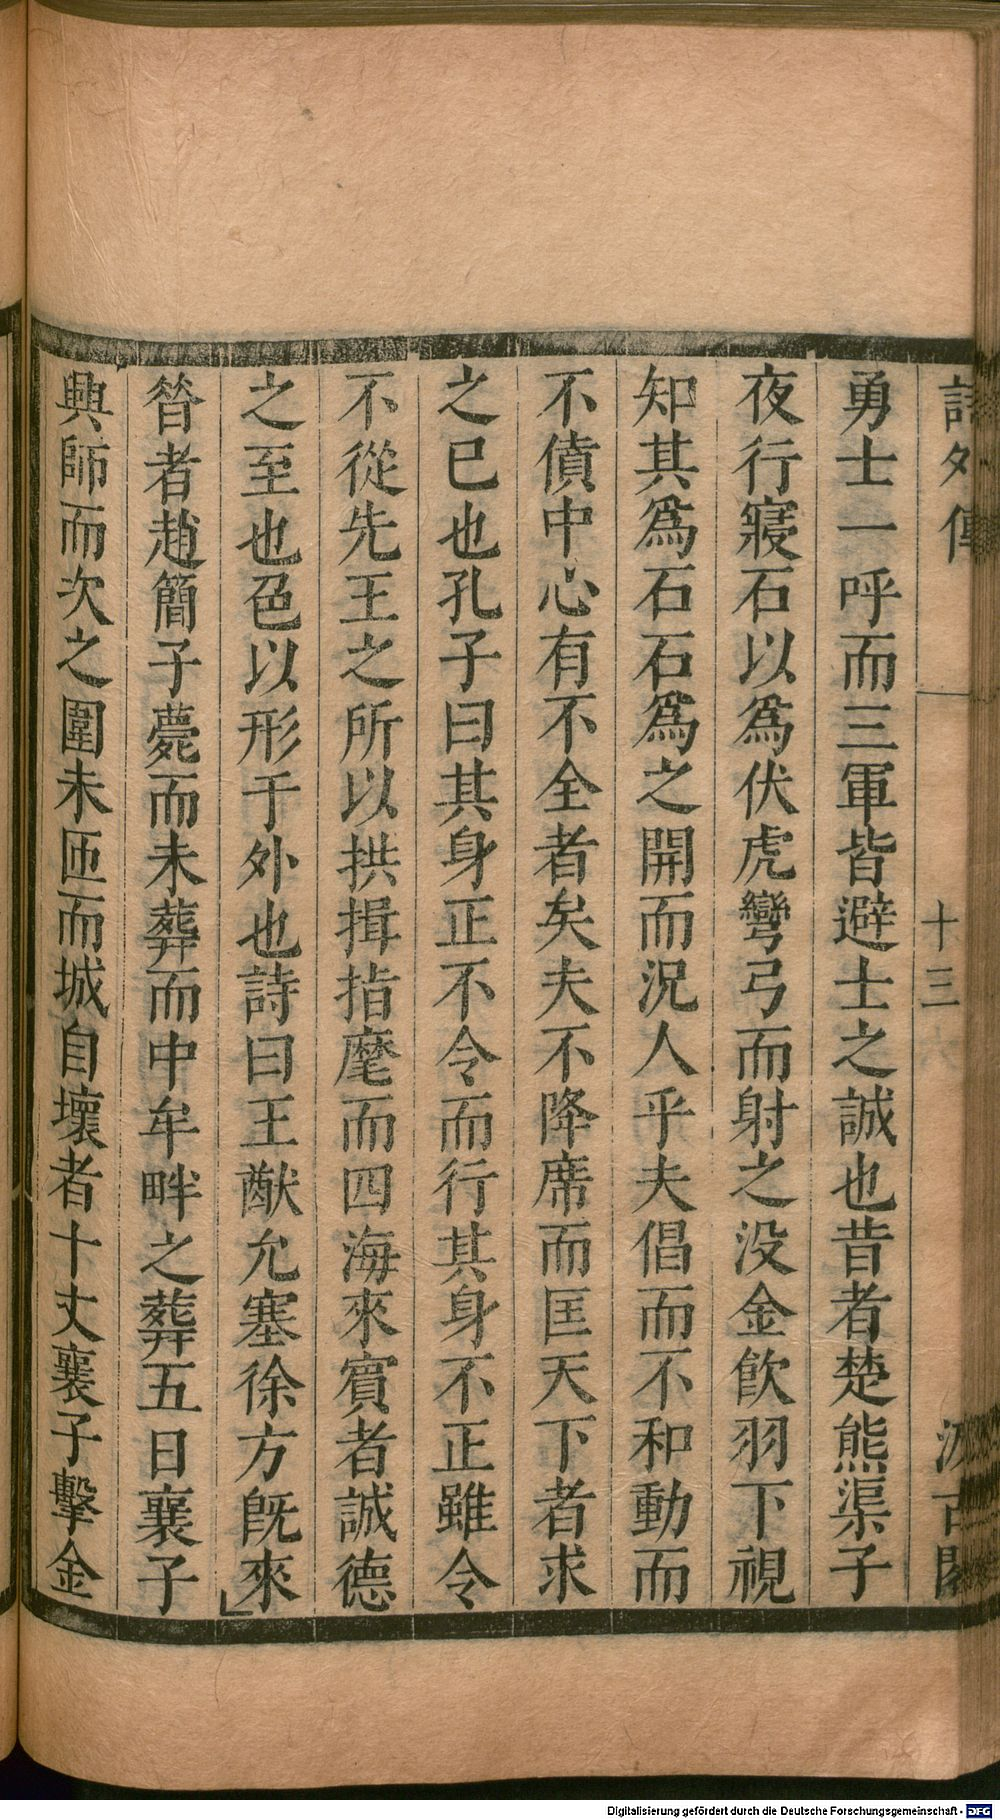 詩外傳
十三
汲古閣
勇士一呼而三軍皆避士之誠也昔者楚熊渠子
夜行寢石以爲伏虎彎弓而射之没金飮羽下視
知其爲石石爲之開而況人乎夫倡而不和動而
不僨中心有不全者矣夫不降席而匡天下者求
之已也孔子曰其身正不令而行其身不正雖令
不從先王之所以拱揖指麾而四海來賓者誠德
之至也色以形于外也詩曰王猷允塞徐方旣來
昝者趙簡子薨而未葬而中牟畔之葬五日襄子
興師而次之圍未匝而城自壞者十丈襄子擊金
Digitalisierung gefördert durch die Deutsche Forschungsgemeinschaft - DFG